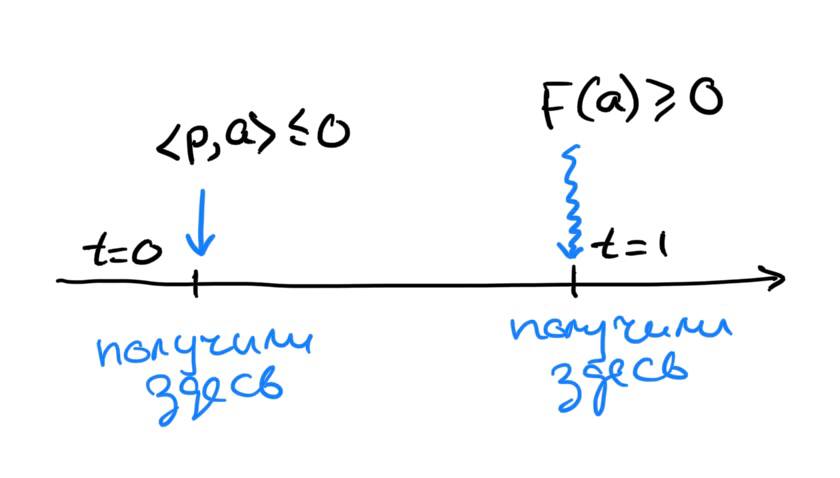 <p,a> ≤ 0
F(a) ⩾ 0
t=0
t=1
получили
здесь
получили
здесь